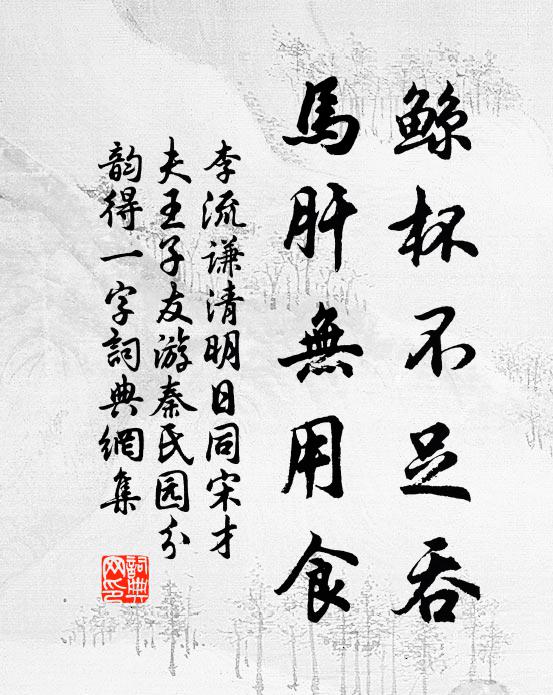 鯨杯不足吞
馬肝無用食
李流謙清明日同宋才
夫王子友游秦氏园分
韵得一字詞典網集
詞典网印